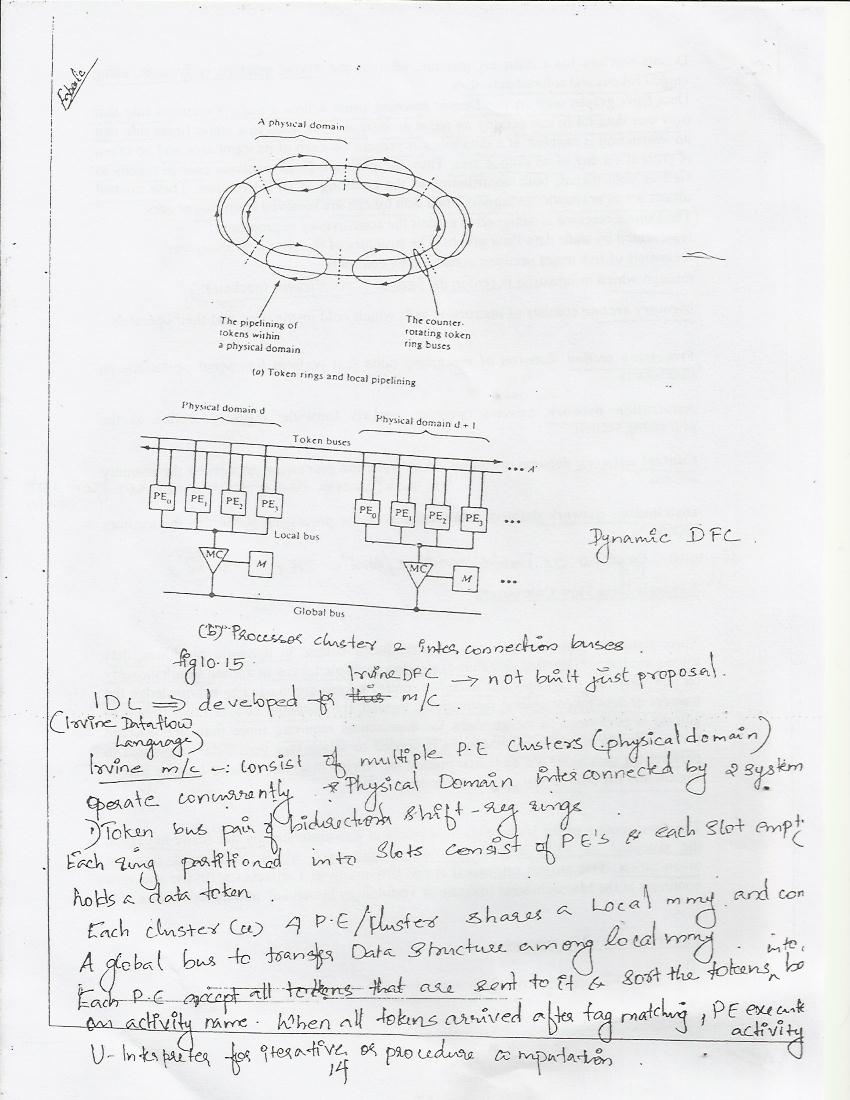 A physical domain
The pipelining of
tokens within
a physical domain
The counter-
rotating token
ring buses
(a) Token rings and local pipelining
Physical domain d
Physical domain d + 1
Token buses
••• A
PE0 PE1 PE2 PE3
PE0 PE1 PE2 PE3 •••
Local bus
MC M
MC M •••
Global bus
Dynamic DFC.
(b) Processor cluster & inter connection buses.
fig 10.15
Irvine DFC → not built just proposal.
IDL ⇒ developed for this m/c.
(Irvine Dataflow
Language)
Irvine m/c -: consist of multiple P.E clusters (physical domain)
operate concurrently * Physical Domain interconnected by 2 system
1) Token bus pair of bidirection shift-reg rings
Each ring partitioned into slots consist of PE's & each slot empt
holds a data token.
Each cluster (or) 4 P.E/cluster shares a Local mmy. and con
A global bus to transfer Data structure among local mmy.
into.
Each P.E accept all tokens that are sent to it & sort the tokens, be
on activity name. When all tokens arrived after tag matching, PE execute
activity
U-Interpreter for iterative or procedure computation.
14